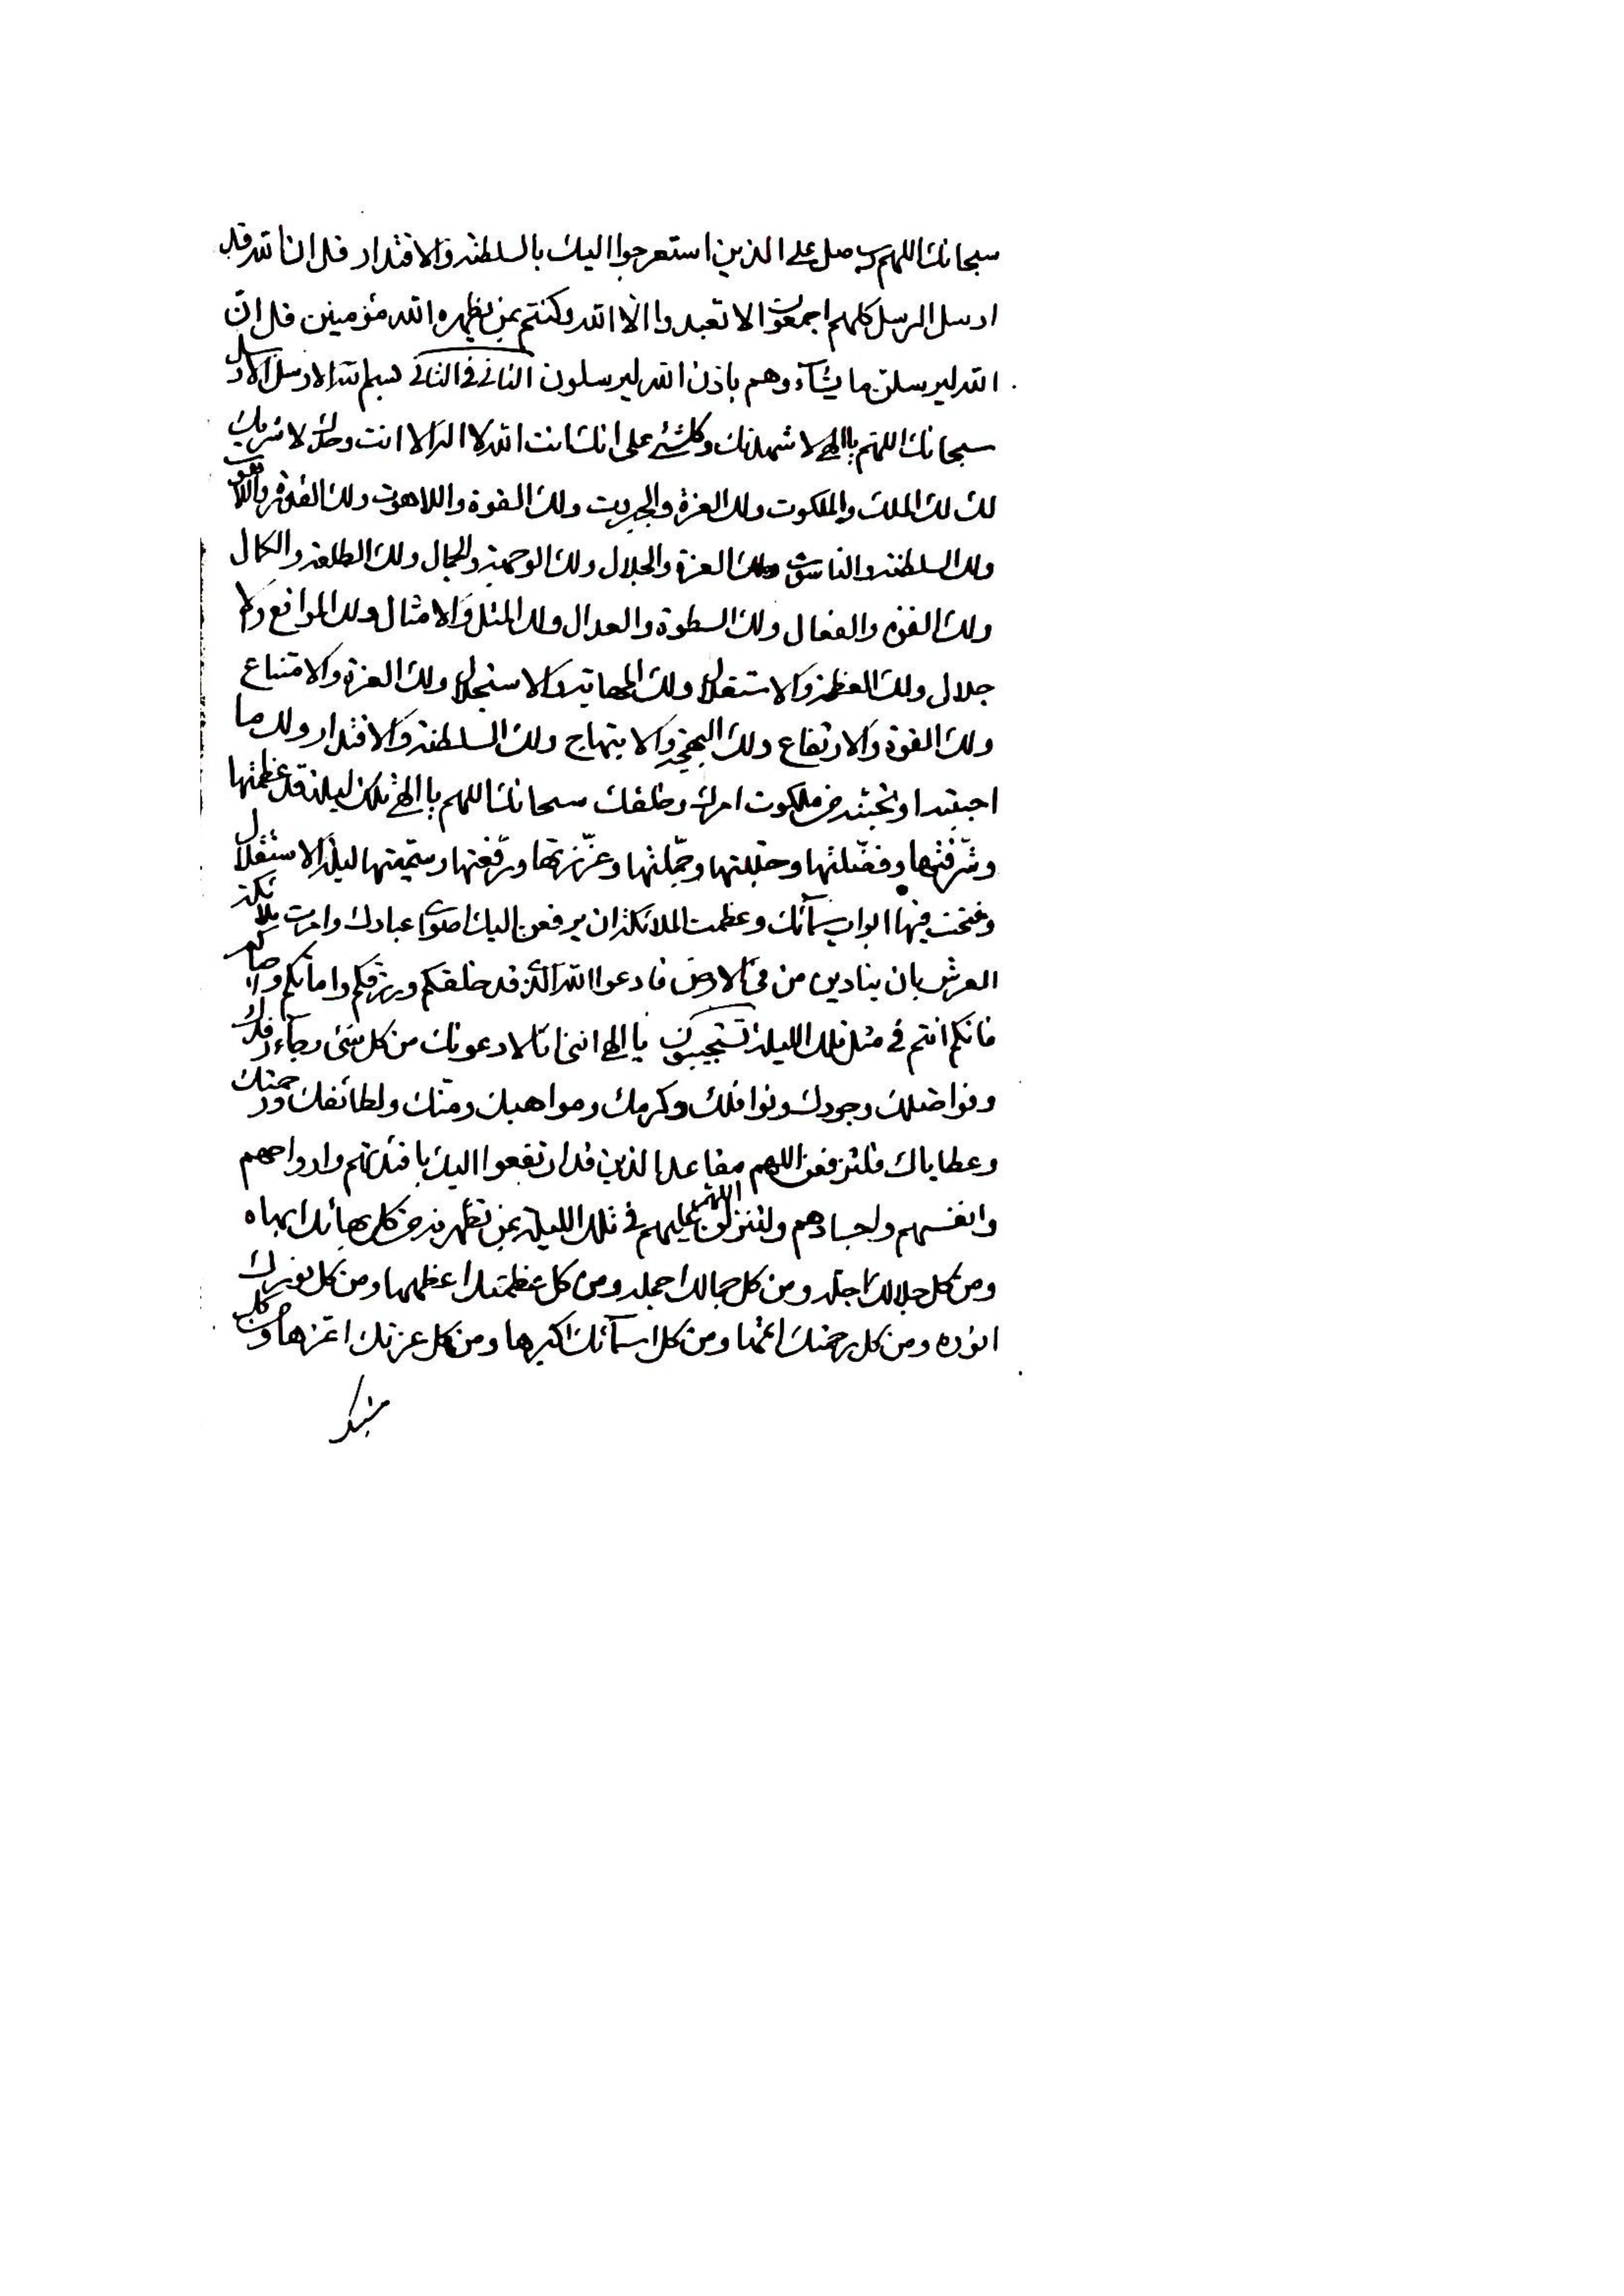 سبحانك اللهم صل على الذين استعرجوا اليك بالسلطنة والاقتدار قل ان الله قد
ارسل الرسل كلهم اجمعون الا تعبدوا الا الله وكنتم بمن يظهره الله مؤمنين قل ان
الله ليرسلن ما يشآء وهم باذن الله ليرسلون الثاني في الثاني بسم الله الارسل الارسل
سبحانك اللهم يا الهي لاشهدنك وكلشئ على انك انت الله لا اله الا انت وحدك لا شريك
لك لك الملك والملكوت ولك العزة والجبروت ولك القوة واللاهوت ولك القدرة والياقوت
ولك السلطنة والناسوت ولك العزة والجلال ولك الوجهة والجمال ولك الطلعة والكمال
ولك القوة والفعال ولك السطوة والعدال ولك المثل والامثال ولك المواقع
جلال ولك العظمة والاستقلال ولك المهابة والاستجلال ولك العزة والامتناع
ولك القوة والارتفاع ولك البهجة والابتهاج ولك السلطنة والاقتدار ولك ما
احببته او تحبنه من ملكوت امرك وخلقك سبحانك اللهم يا الهي تلك ليلة قد عظمتها
وشرفتها وفضلتها وجللتها وجملتها وعززتها ورفعتها وسميتها ليلة الاستقلال
وفتحت فيها ابواب سمآئك وعظمت الملائكة ان يرفعن اليك اصوات عبادك وامرت ملائكة
العرش بان ينادين من في الارض فادعوا الله الذي قد خلقكم ورزقكم واماتكم واحياكم
فانكم انتم في مثل تلك الليلة تستجيبون يا الهي انني انا لادعونك من كل شئ رجآء فضلك
وفواضلك وجودك ونوافلك وكرمك ومواهبك ومنك ولطائفك ورحمتك
وعطاياك فلترفعن اللهم مقاعد الذين قد ارتفعوا اليك بافئدتهم وارواحهم
وانفسهم واجسادهم ولتنزلن اللهم عليهم في تلك الليلة بمن تظهرنه من كل بهائك ابهاه
ومن كل جلالك اجله ومن كل جمالك اجمله ومن كل عظمتك اعظمها ومن كل نورك
انوره ومن كل رحمتك اعمها ومن كل اسمآئك اكبرها ومن كل عزتك اعزها ومن كل